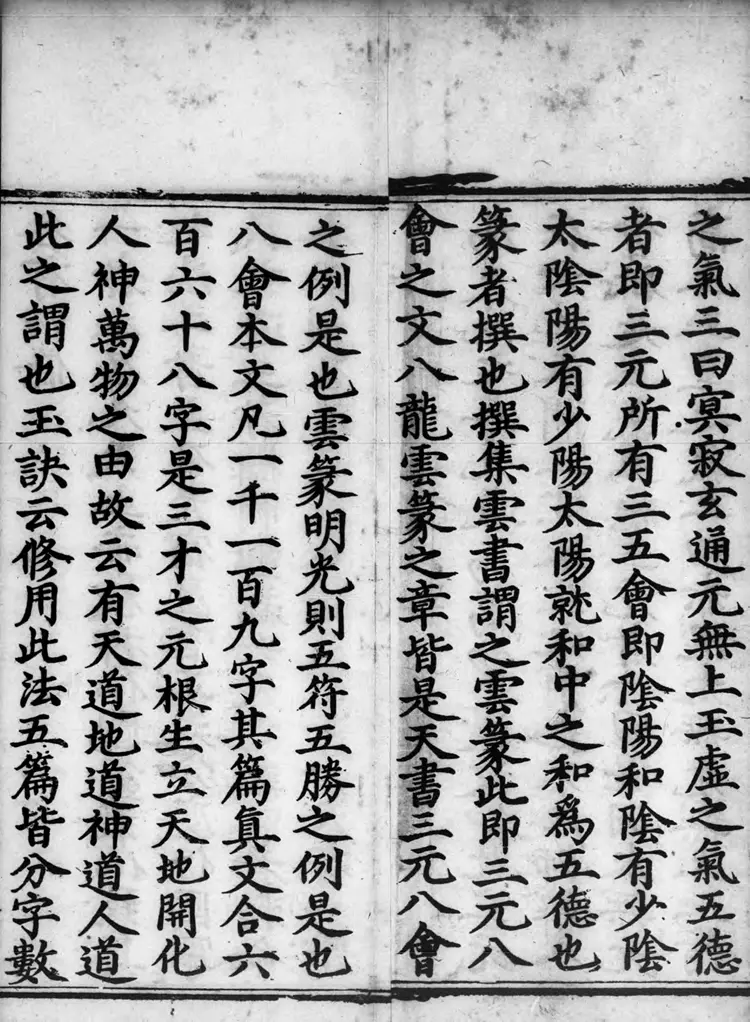 之氣三曰冥寂玄通元無上玉虛之氣五德
者即三元所有三五會即陰陽和陰有少陰
太陰陽有少陽太陽就和中之和為五德也
篆者撰也撰集雲書謂之雲篆此即三元八
會之文八龍雲篆之章皆是天書三元八會
之例是也雲篆明光則五符五勝之例是也
八會本文凡一千一百九字其篇真文合六
百六十八字是三才之元根生立天地開化
人神萬物之由故云有天道地道神道人道
此之謂也玉訣云修用此法五篇皆分字數